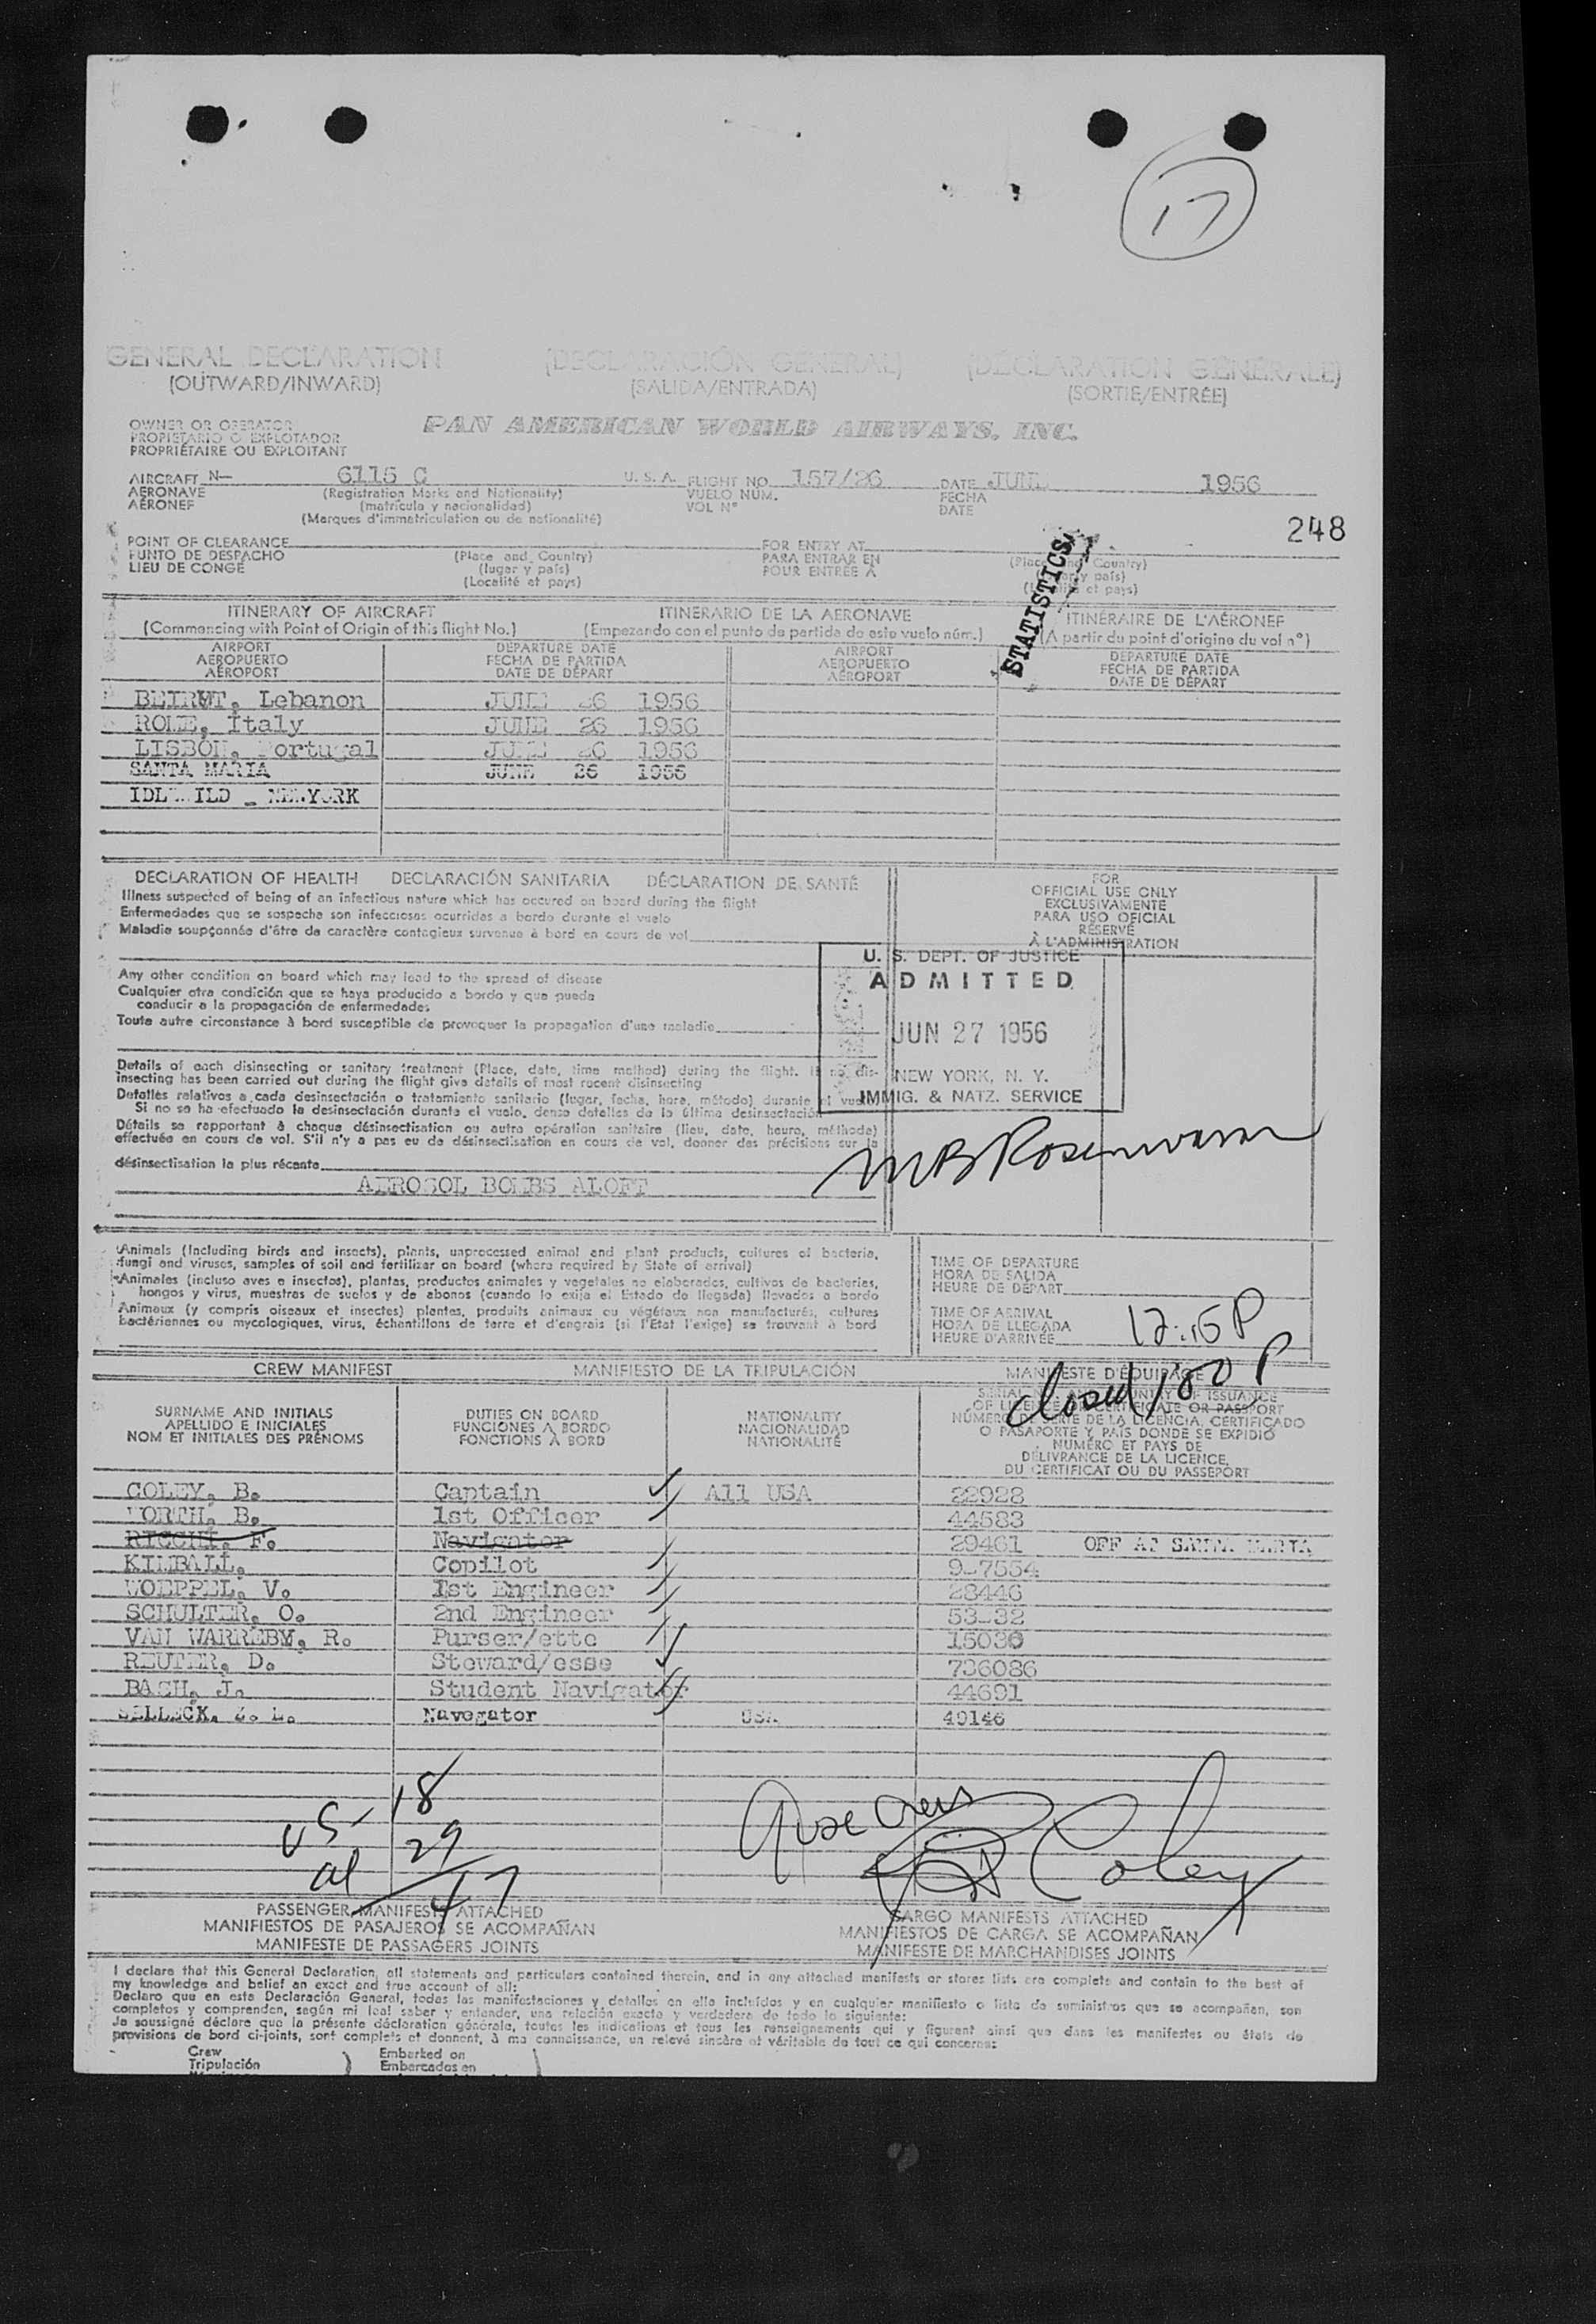 17
GENERAL DECLARATION (DECLARACIÓN GENERAL) (DÉCLARATION GÉNÉRALE)
(OUTWARD/INWARD) (SALIDA/ENTRADA) (SORTIE/ENTRÉE)
OWNER OR OPERATOR
PROPIETARIO O EXPLOTADOR
PROPRIÉTAIRE OU EXPLOITANT
PAN AMERICAN WORLD AIRWAYS, INC.
AIRCRAFT N— 6115 C U. S. A. FLIGHT NO. 157/26 DATE JUNE 1956
AERONAVE (Registration Marks and Nationality) VUELO NÚM. FECHA
AÉRONEF (matrícula y nacionalidad) VOL N° DATE
(Marques d'immatriculation ou de nationalité)
248
POINT OF CLEARANCE FOR ENTRY AT
PUNTO DE DESPACHO (Place and Country) PARA ENTRAR EN (Place and Country)
LIEU DE CONGÉ (lugar y país) POUR ENTRÉE À
(Localité et pays)
STATISTICS
ITINERARY OF AIRCRAFT ITINERARIO DE LA AERONAVE ITINÉRAIRE DE L'AÉRONEF
(Commencing with Point of Origin of this flight No.) (Empezando con el punto de partida de este vuelo núm.) (A partir du point d'origine du vol n°)
AIRPORT DEPARTURE DATE AIRPORT DEPARTURE DATE
AEROPUERTO FECHA DE PARTIDA AEROPUERTO FECHA DE PARTIDA
AÉROPORT DATE DE DÉPART AÉROPORT DATE DE DÉPART
BEIRUT, Lebanon JUNE 26 1956
ROME, Italy JUNE 26 1956
LISBON, Portugal JUNE 26 1956
SANTA MARIA JUNE 26 1956
IDLEWILD _ NEWYORK
DECLARATION OF HEALTH DECLARACIÓN SANITARIA DÉCLARATION DE SANTÉ
Illness suspected of being of an infectious nature which has occured on board during the flight
Enfermedades que se sospecha son infecciosas ocurridas a bordo durante el vuelo
Maladie soupçonnée d'être de caractère contagieux survenue à bord en cours de vol
FOR
OFFICIAL USE ONLY
EXCLUSIVAMENTE
PARA USO OFICIAL
RÉSERVÉ
À L'ADMINISTRATION
Any other condition on board which may lead to the spread of disease
Cualquier otra condición que se haya producido a bordo y que pueda
conducir a la propagación de enfermedades
Toute autre circonstance à bord susceptible de provoquer la propagation d'une maladie
U. S. DEPT. OF JUSTICE
ADMITTED
JUN 27 1956
NEW YORK, N. Y.
IMMIG. & NATZ. SERVICE
Details of each disinsecting or sanitary treatment (Place, date, time method) during the flight. If no dis-
insecting has been carried out during the flight give details of most recent disinsecting
Detalles relativos a cada desinsectación o tratamiento sanitario (lugar, fecha, hora, método) durante el vuelo
Si no se ha efectuado la desinsectación durante el vuelo, dense detalles de la última desinsectación
Détails se rapportant à chaque désinsectisation ou autre opération sanitaire (lieu, date, heure, méthode)
effectuée en cours de vol. S'il n'y a pas eu de désinsectisation en cours de vol, donner des précisions sur la
désinsectisation la plus récente
AEROSOL BOMBS ALOFT
Animals (Including birds and insects), plants, unprocessed animal and plant products, cultures of bacteria,
fungi and viruses, samples of soil and fertilizer on board (where required by State of arrival)
Animales (incluso aves e insectos), plantas, productos animales y vegetales no elaborados, cultivos de bacterias,
hongos y virus, muestras de suelos y de abonos (cuando lo exija el Estado de llegada) llevados a bordo
Animaux (y compris oiseaux et insectes) plantes, produits animaux ou végétaux non manufacturés, cultures
bactériennes ou mycologiques, virus, échantillons de terre et d'engrais (si l'Etat l'exige) se trouvant à bord
TIME OF DEPARTURE
HORA DE SALIDA
HEURE DE DÉPART
TIME OF ARRIVAL
HORA DE LLEGADA
HEURE D'ARRIVÉE
closed 100 P
CREW MANIFEST MANIFIESTO DE LA TRIPULACIÓN MANIFESTE D'ÉQUIPAGE
SURNAME AND INITIALS DUTIES ON BOARD NATIONALITY
APELLIDO E INICIALES FUNCIONES A BORDO NACIONALIDAD
NOM ET INITIALES DES PRÉNOMS FONCTIONS À BORD NATIONALITÉ
SERIAL NO. AND COUNTRY OF ISSUANCE
OF LICENCE OR CERTIFICATE OR PASSPORT
NÚMERO DE SERIE DE LA LICENCIA, CERTIFICADO
O PASAPORTE Y PAÍS DONDE SE EXPIDIÓ
NUMÉRO ET PAYS DE
DÉLIVRANCE DE LA LICENCE,
DU CERTIFICAT OU DU PASSEPORT
COLEY, B. Captain All USA 22928
WORTH, B. 1st Officer 44583
RICCHI, F. Navigator 29461 OFF AT SANTA MARIA
KIMBALL, Copilot 9-7554
WOEPPEL, V. 1st Engineer 28446
SCHULTER, O. 2nd Engineer 53-32
VAN WARREBY, R. Purser/ette 15030
REUTER, D. Steward/esse 736086
BACH, J. Student Navigator 44691
SELLECK, Navegator USA 49146
US- 18
al 29
47
Coley
PASSENGER MANIFESTS ATTACHED CARGO MANIFESTS ATTACHED
MANIFIESTOS DE PASAJEROS SE ACOMPAÑAN MANIFIESTOS DE CARGA SE ACOMPAÑAN
MANIFESTE DE PASSAGERS JOINTS MANIFESTE DE MARCHANDISES JOINTS
I declare that this General Declaration, all statements and particulars contained therein, and in any attached manifests or stores lists are complete and contain to the best of
my knowledge and belief an exact and true account of all:
Declaro que en esta Declaración General, todas las manifestaciones y detalles en ella incluídos y en cualquier manifiesto o lista de suministros que se acompañan, son
completos y comprenden, según mi leal saber y entender, una relación exacta y verdadera de todo lo siguiente:
Je soussigné déclare que la présente déclaration générale, toutes les indications et tous les renseignements qui y figurent ainsi que dans les manifestes ou états de
provisions de bord ci-joints, sont complets et donnent, à ma connaissance, un relevé sincère et véritable de tout ce qui concerne:
Crew Embarked on
Tripulación Embarcados en